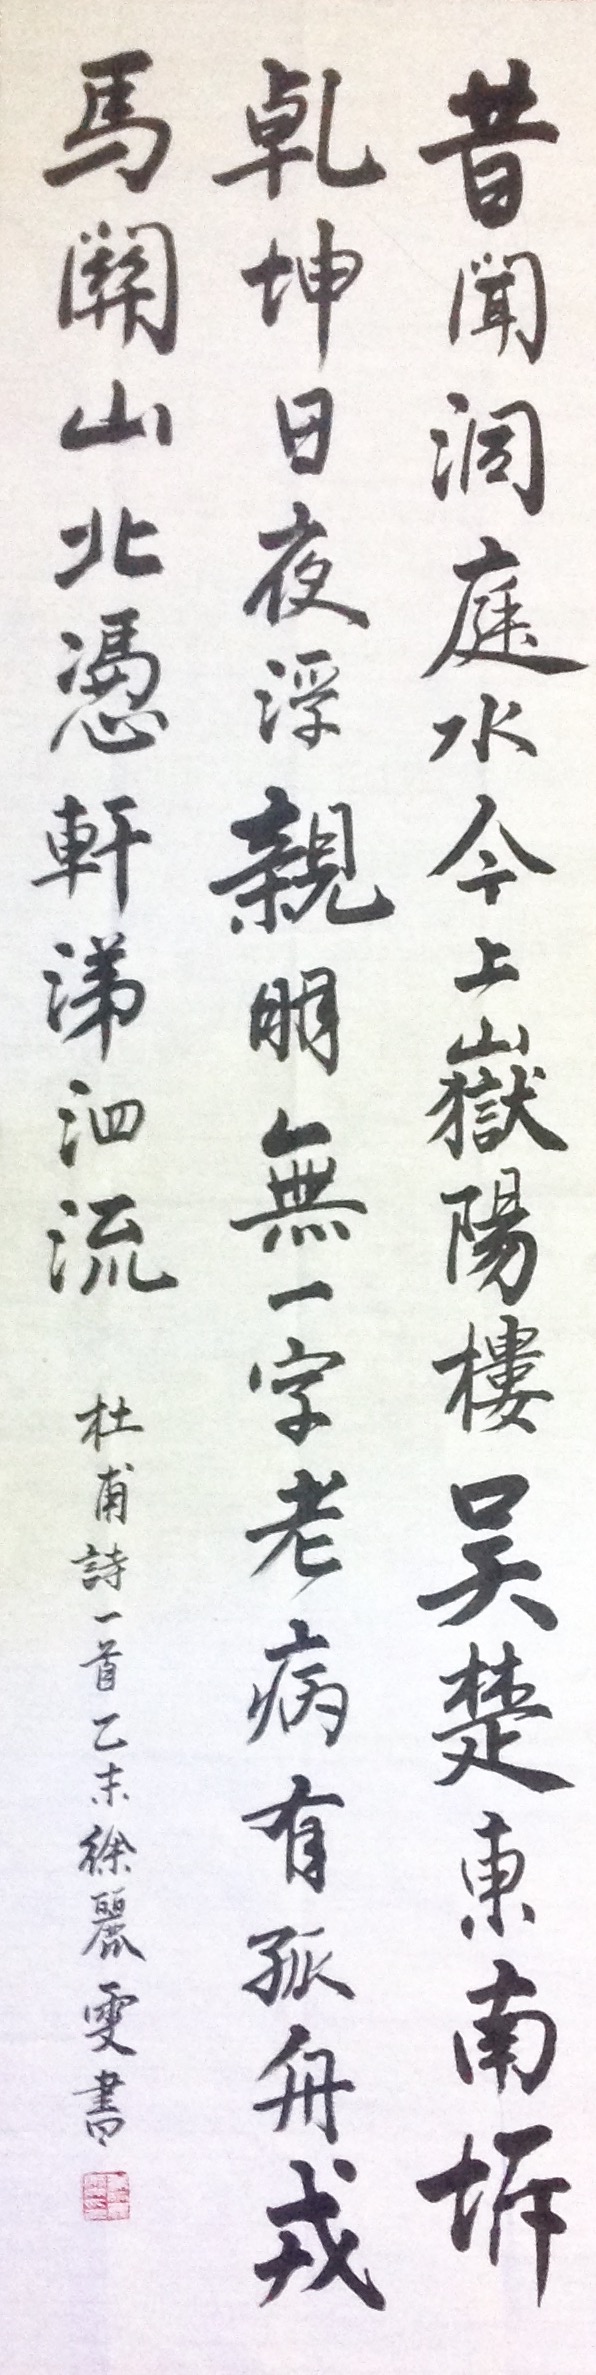 昔聞洞庭水今上嶽陽樓吴楚東南坼
乹坤日夜浮親朋無一字老病有孤舟戎
馬關山北憑軒涕泗流
杜甫詩一首乙未徐麗雯書